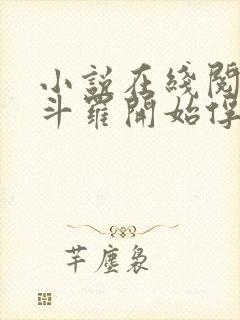 小說在綫閱
斗羅開始俘
芊塵裊